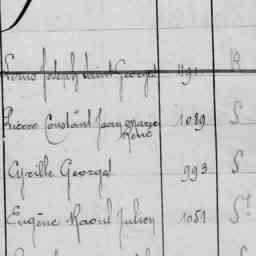 Louis Joseph Saint Georget 1191 R
Pierre Constant Jean Marie René 1089 S
Cyrille Georget 993 S
Eugène Raoul Julien 1051 St